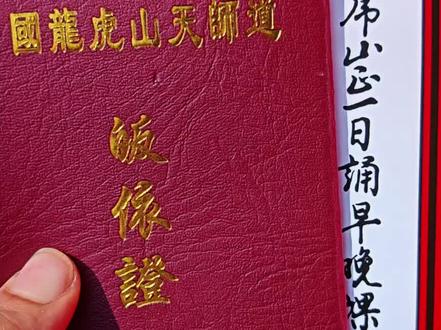 國龍虎山天師道
皈依證
虎山正一日誦早晚課